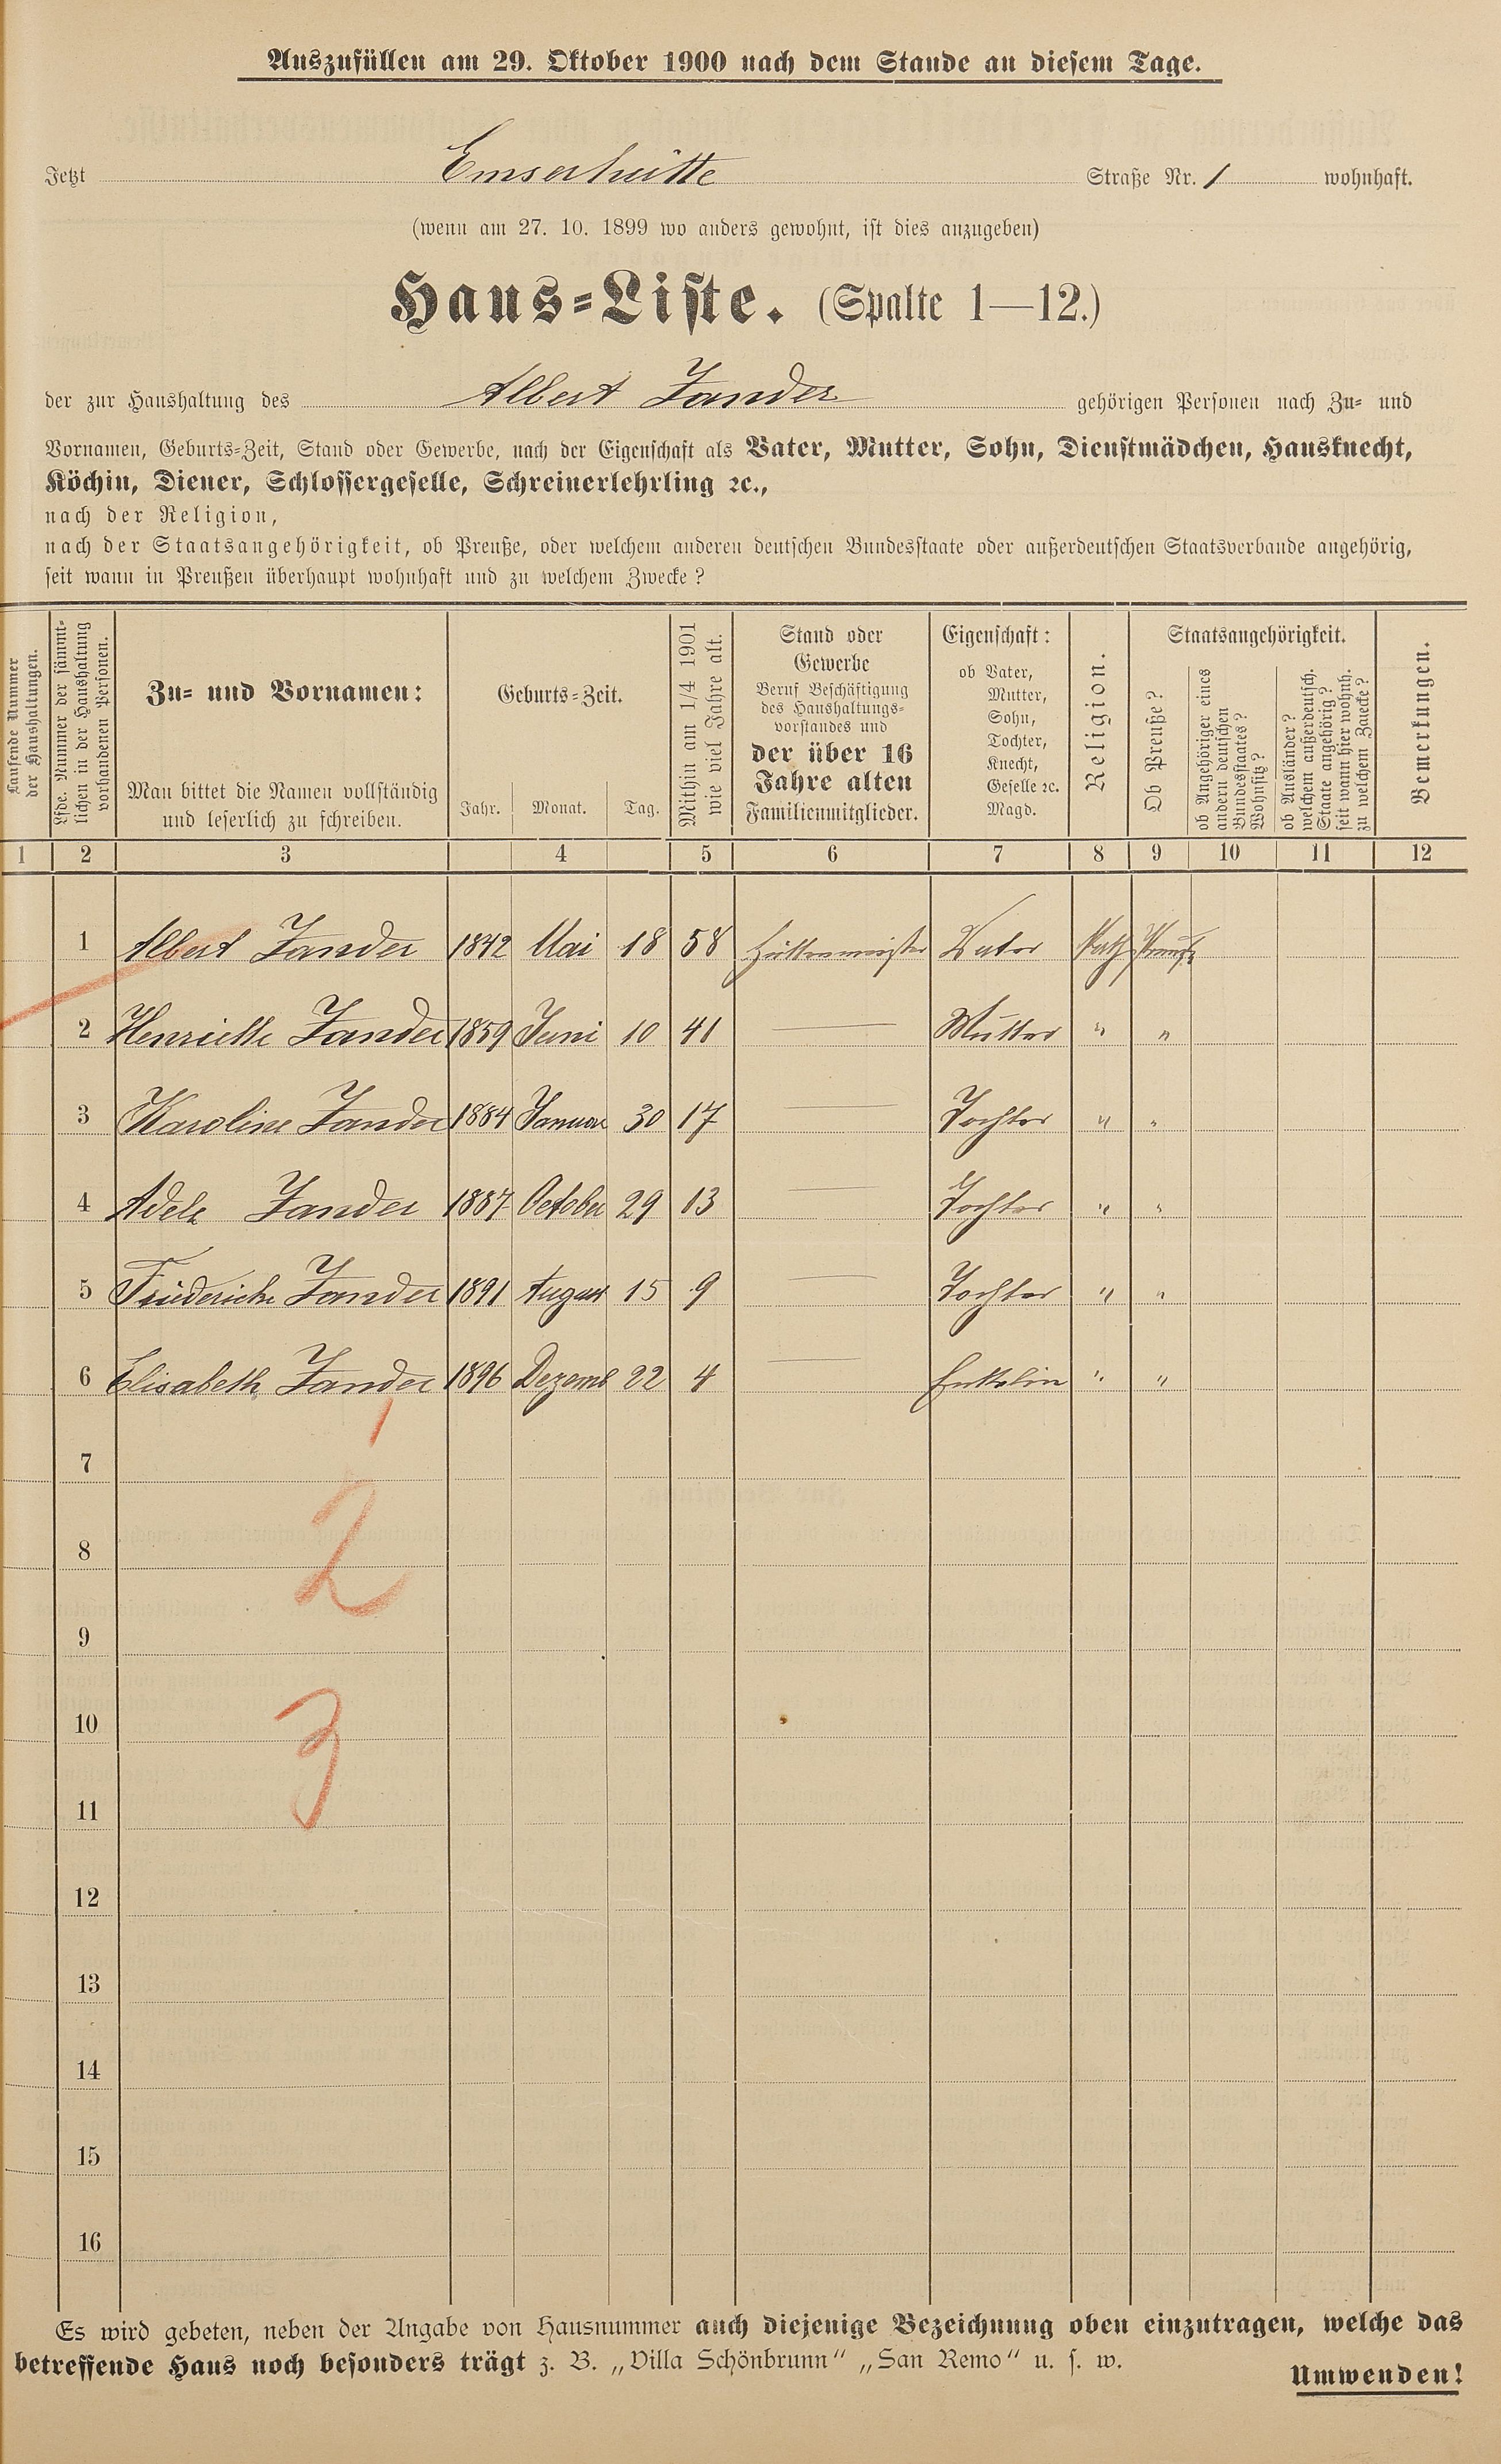 Auszufüllen am 29. Oktober 1900 nach dem Stande an diesem Tage.
Jetzt Emserhütte Straße Nr. 1 wohnhaft.
(wenn am 27. 10. 1899 wo anders gewohnt, ist dies anzugeben)
Haus=Liste. (Spalte 1—12.)
der zur Haushaltung des Albert Zander gehörigen Personen nach Zu= und
Vornamen, Geburts=Zeit, Stand oder Gewerbe, nach der Eigenschaft als Vater, Mutter, Sohn, Dienstmädchen, Hausknecht,
Köchin, Diener, Schlossergeselle, Schreinerlehrling ꝛc.,
nach der Religion,
nach der Staatsangehörigkeit, ob Preuße, oder welchem anderen deutschen Bundesstaate oder außerdeutschen Staatsverbande angehörig,
seit wann in Preußen überhaupt wohnhaft und zu welchem Zwecke?
Laufende Nummer
der Haushaltungen.
Lfde. Nummer der sämmt=
lichen in der Haushaltung
vorhandenen Personen.
Zu= und Vornamen:
Man bittet die Namen vollständig
und leserlich zu schreiben.
Geburts=Zeit.
Jahr. Monat. Tag.
Mithin am 1/4 1901
wie viel Jahre alt.
Stand oder
Gewerbe
Beruf Beschäftigung
des Haushaltungs=
vorstandes und
der über 16
Jahre alten
Familienmitglieder.
Eigenschaft:
ob Vater,
Mutter,
Sohn,
Tochter,
Knecht,
Geselle ꝛc.
Magd.
Religion.
Staatsangehörigkeit.
Ob Preuße?
ob Angehöriger eines
andern deutschen
Bundesstaates?
Wohnsitz?
ob Ausländer?
welchem außerdeutsch.
Staate angehörig?
seit wann hier wohnh.
zu welchem Zwecke?
Bemerkungen.
1 2 3 4 5 6 7 8 9 10 11 12
1 Albert Zander 1842 Mai 18 58 Hüttenmeister Vater Kath Preuße
2 Henriette Zander 1859 Juni 10 41 — Mutter " "
3 Karoline Zander 1884 Januar 30 17 — Tochter " "
4 Adele Zander 1887 October 29 13 — Tochter " "
5 Friedericke Zander 1891 August 15 9 — Tochter " "
6 Elisabeth Zander 1896 Dezemb 22 4 — Enkelin " "
1
7
2
8
9
3
10
11
12
13
14
15
16
Es wird gebeten, neben der Angabe von Hausnummer auch diejenige Bezeichnung oben einzutragen, welche das
betreffende Haus noch besonders trägt z. B. „Villa Schönbrunn“ „San Remo“ u. s. w.
Umwenden!